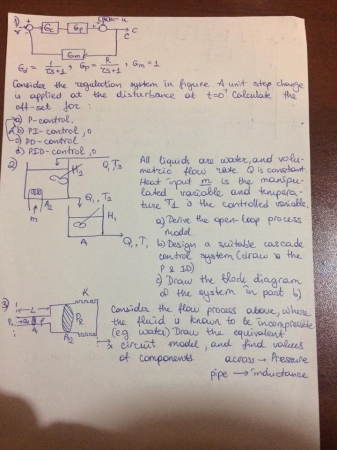 Gc
Gp
C
Gm
Gd = 1/(τs+1), Gp = R/(τs+1), Gm = 1
Consider the regulation system in figure. A unit step change
is applied at the disturbance at t=0+ Calculate the
off-set for :
a) P-control,
b) PI-control, 0
c) PD-control
d) PID-control, 0
2)
Q, T3
H2
A2
m
Q1, T2
H1
A
Q1, T1
All liquids are water, and volu-
metric flow rate Q is constant.
Heat input m is the manipu-
lated variable and tempera-
ture T1 is the controlled variable.
a) Derive the open-loop process
model
b) Design a suitable cascade
control system (draw the
P & ID)
c) Draw the block diagram
of the system in part b)
3)
L
K
A2
x
Consider the flow process above, where
the fluid is known to be incompressible
(e.g. water) Draw the equivalent
circuit model, and find values
of components.
across → Pressure
pipe → inductance